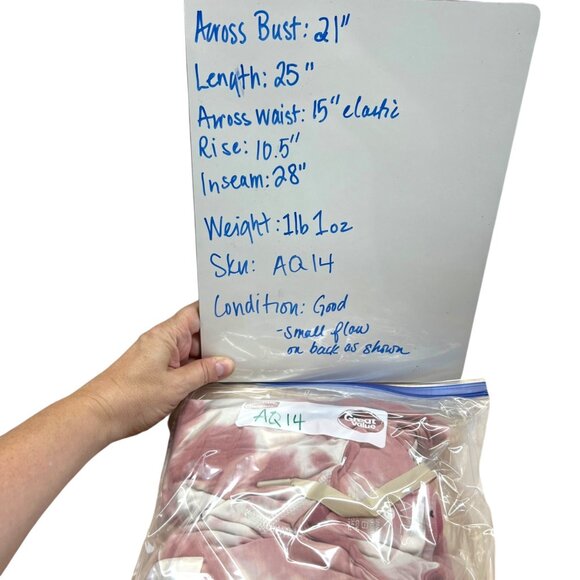 Across Bust: 21"
Length: 25"
Across Waist: 15" elastic
Rise: 10.5"
Inseam: 28"
Weight: 1lb 1oz
Sku: AQ14
Condition: Good
- small flaw
on back as shown
AQ14
Great Value